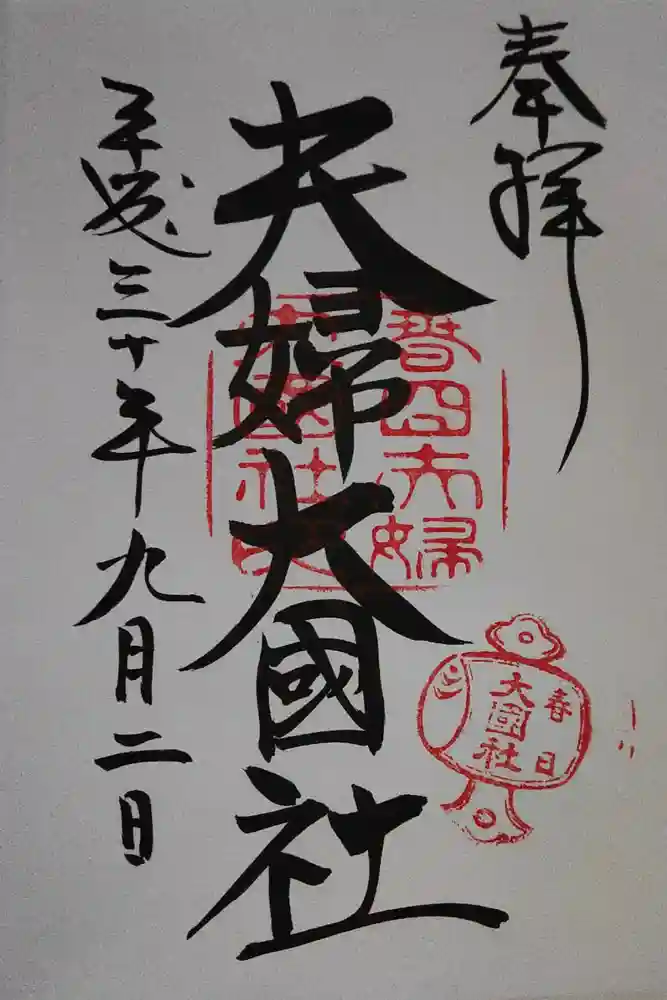 奉拝
夫婦大國社
春日夫婦
大國社
春日
大國社
平成三十年九月二日